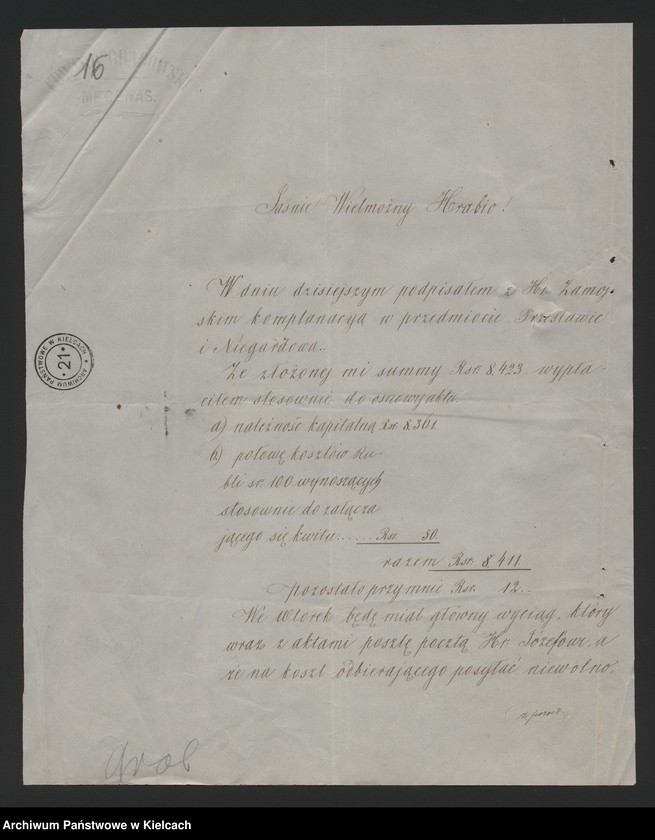 16
MECENAS.
Jaśnie Wielmożny Hrabio!
W dniu dzisiejszym podpisałem z Hr. Zamoj-
skim komplanacyą w przedmiocie Przesławic
i Niegardowa..
Ze złożonej mi summy Rsr. 8,423 wypła-
ciłem stosownie do osnowy aktu
a) należność kapitalną Rsr. 8.361.
b) połowę kosztów Ru-
bli sr. 100 wynoszących
stosownie do załącza-
jącego się kwitu...... Rsr. 50.
razem Rsr. 8,411.
pozostało przy mnie Rsr. 12..
We wtorek będę miał główny wyciąg, który
wraz z aktami poszlę pocztą Hr. Józefowi, a
że na koszt odbierającego posyłać niewolno,
ARCHIWUM PAŃSTWOWE W KIELCACH
*21*
Archiwum Państwowe w Kielcach